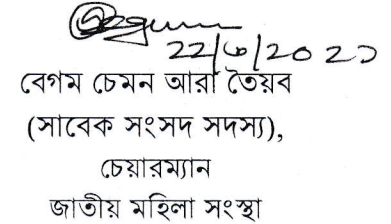 22/৬/2021
বেগম চেমন আরা তৈয়ব
(সাবেক সংসদ সদস্য),
চেয়ারম্যান
জাতীয় মহিলা সংস্থা